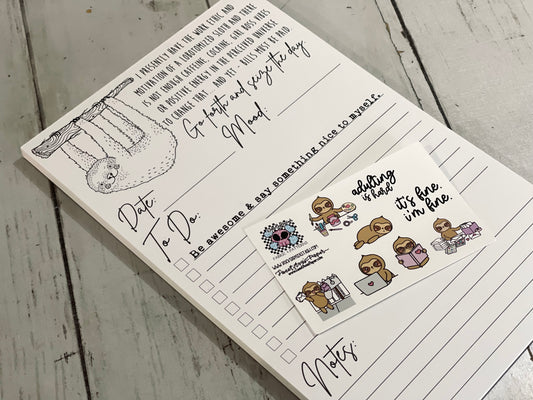 I PRESENTLY HAVE THE WORK ETHIC AND
MOTIVATION OF A LOBOTOMIZED SLOTH AND THERE
IS NOT ENOUGH CAFFEINE, COCAINE, GIRL BOSS VIBES
OR POSITIVE ENERGY IN THE PERCEIVED UNIVERSE
TO CHANGE THAT... AND YET - BILLS MUST BE PAID
Go forth and seize the day
Mood:
Date:
To Do:
Be awesome & say something nice to myself.
adulting
is hard
it's fine.
i'm fine.
Notes: